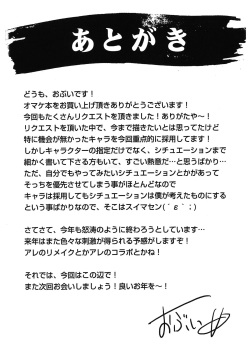 あとがき
どうも、おぶいです！
オマケ本をお買い上げ頂きありがとうございます！
今回もたくさんリクエストを頂きました！ありがたや～！
リクエストを頂いた中で、今まで描きたいとは思ってたけど
特に機会が無かったキャラを今回重点的に採用してます！
しかしキャラクターの指定だけでなく、シチュエーションまで
細かく書いて下さる方もいて、すごい熱意だ…と思うばかり…
ただ、自分でもやってみたいシチュエーションとかがあって
そっちを優先させてしまう事がほとんどなので
キャラは採用してもシチュエーションは僕が考えたものにする
という事ばかりなので、そこはスイマセン(´ε｀；)
さてさて、今年も怒涛のように終わろうとしています…
来年はまた色々な刺激が得られる予感がしますぞ！
アレのリメイクとかアレのコラボとかね！
それでは、今回はこの辺で！
また次回お会いしましょう！良いお年を〜！
おぶい